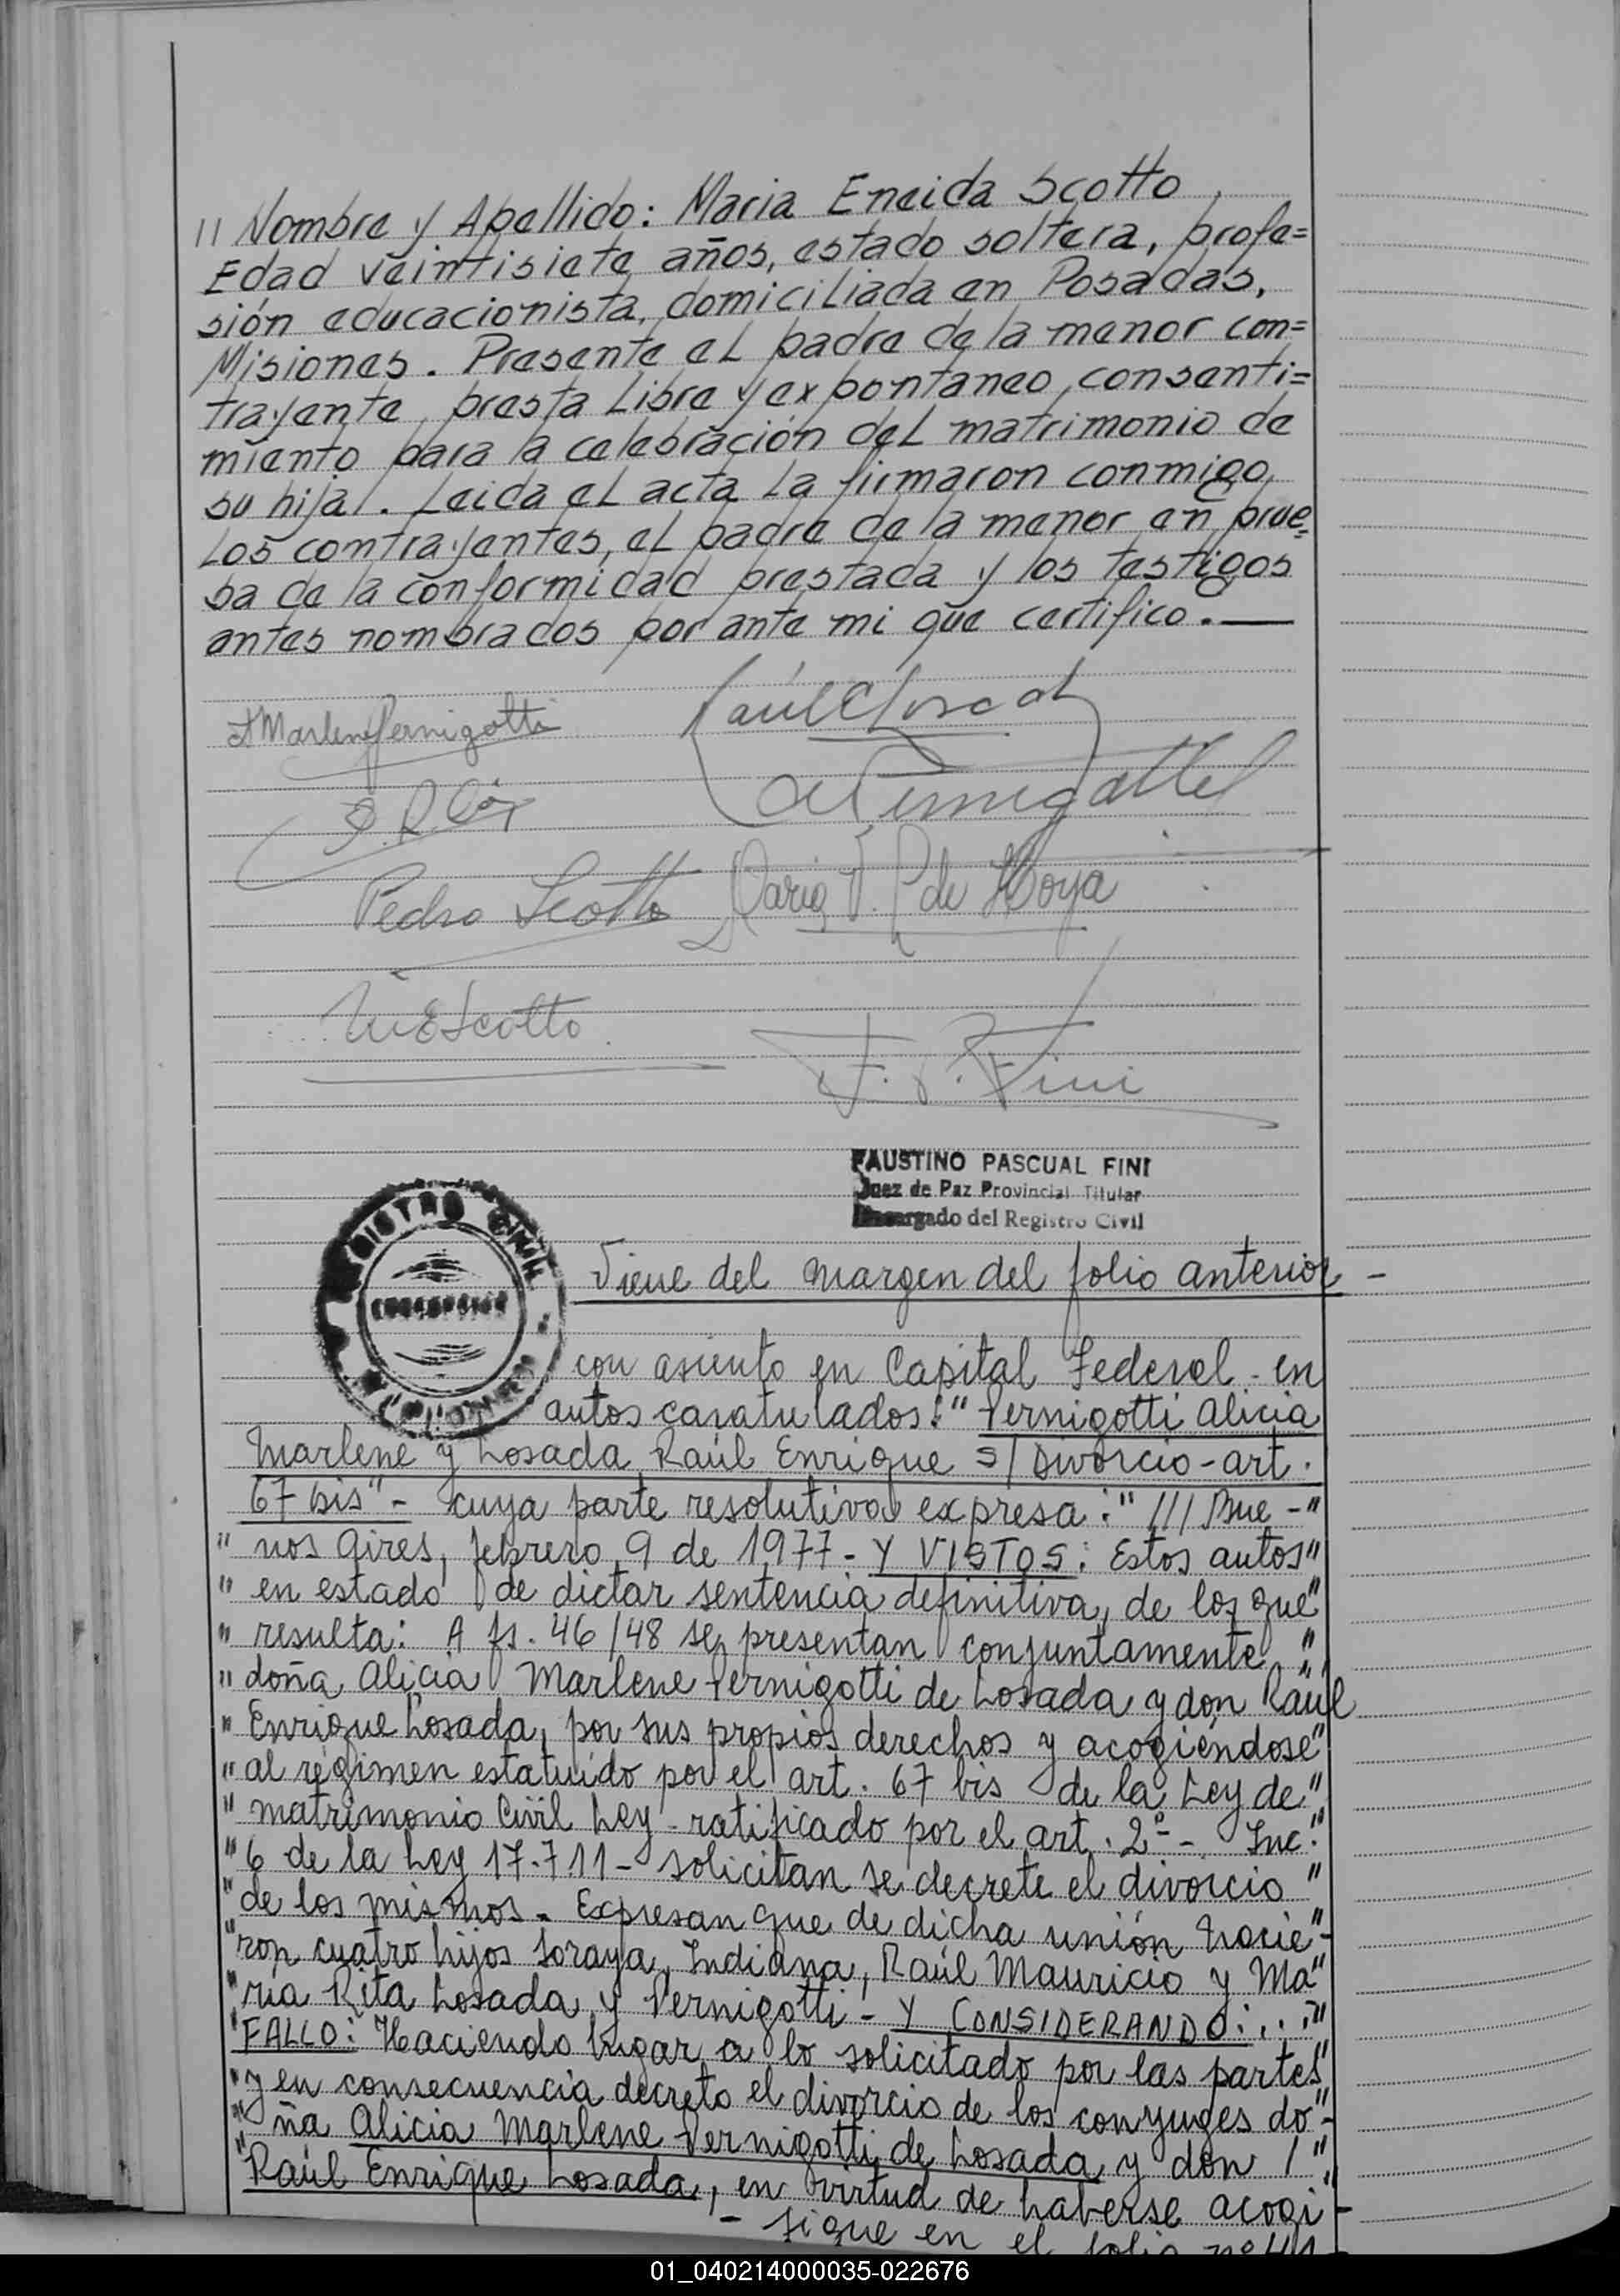 // Nombre y Apellido: Maria Eneida Scotto,
Edad veintisiete años, estado soltera, profe=
sión educacionista, domiciliada en Posadas,
Misiones. Presente el padre de la menor con=
trayente, presta libre y expontaneo, consenti=
miento para la celebración del matrimonio de
su hija. Leida el acta la firmaron conmigo,
los contrayentes, el padre de la menor en prue=
ba de la conformidad prestada y los testigos
antes nombrados por ante mi que certifico.—
A Marlene Pernigotti
Pedro Scotto
de Moya
M E Scotto
F. P. Fini
FAUSTINO PASCUAL FINI
Juez de Paz Provincial Titular
Encargado del Registro Civil
REGISTRO CIVIL
CONCEPCION
Viene del margen del folio anterior -
con asiento en Capital Federal - en
autos caratulados: "Pernigotti Alicia
Marlene y Losada Raúl Enrique s/ Divorcio - art.
67 bis" - cuya parte resolutiva expresa: " /// Bue - "
" nos Aires, febrero 9 de 1977 - Y VISTOS: Estos autos "
" en estado de dictar sentencia definitiva, de los que "
" resulta: A fs. 46/48 se presentan conjuntamente "
" doña Alicia Marlene Pernigotti de Losada y don Raúl "
" Enrique Losada, por sus propios derechos y acogiéndose "
" al régimen estatuído por el art. 67 bis de la Ley de "
" matrimonio Civil Ley - ratificado por el art. 2º - Inc. "
" 6 de la Ley 17.711 - solicitan se decrete el divorcio "
" de los mismos. Expresan que de dicha unión nacie- "
" ron cuatro hijos Soraya, Indiana, Raúl Mauricio y Ma "
" ría Rita Losada y Pernigotti - Y CONSIDERANDO: ... "
" FALLO: Haciendo lugar a lo solicitado por las partes "
" y en consecuencia decreto el divorcio de los conyuges do- "
" ña Alicia Marlene Pernigotti de Losada y don / "
" Raúl Enrique Losada, en virtud de haberse acogi - "
- sigue en el folio nº
01_040214000035-022676